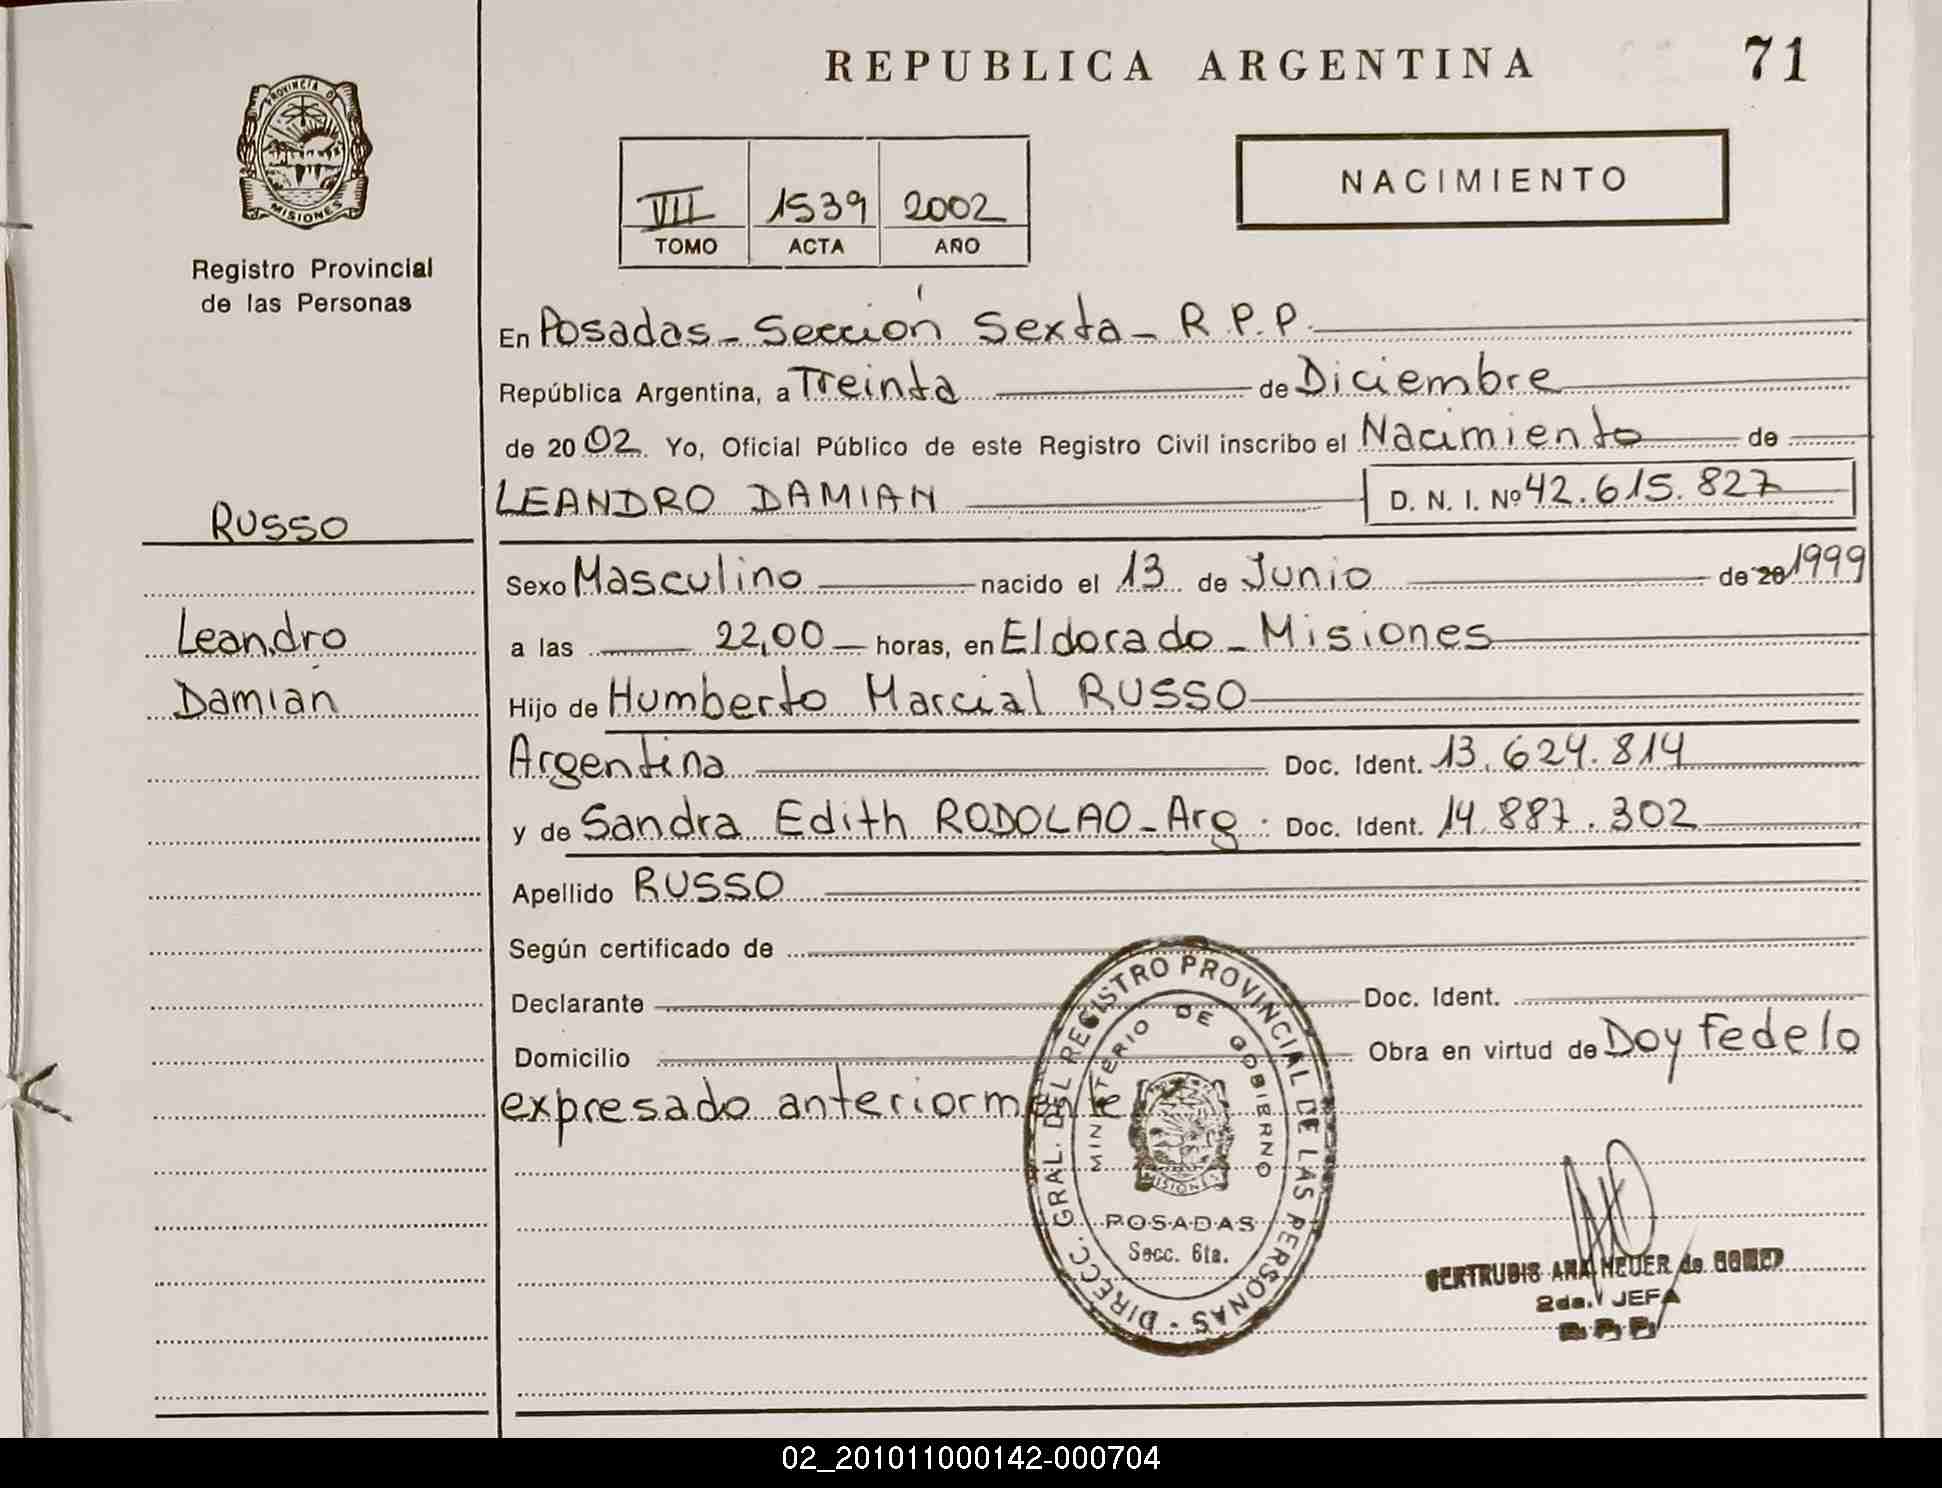 REPUBLICA ARGENTINA
71
PROVINCIA DE
MISIONES
Registro Provincial
de las Personas
VII 1539 2002
TOMO ACTA AÑO
NACIMIENTO
En Posadas - Sección Sexta - R.P.P.
República Argentina, a Treinta de Diciembre
de 2002. Yo, Oficial Público de este Registro Civil inscribo el Nacimiento de
LEANDRO DAMIAN D. N. I. Nº 42.615.827
RUSSO
Sexo Masculino nacido el 13 de Junio de 20 1999
Leandro
a las 22,00 horas, en Eldorado - Misiones
Damián
Hijo de Humberto Marcial RUSSO
Argentina Doc. Ident. 13.624.814
y de Sandra Edith RODOLAO - Arg. Doc. Ident. 14.887.302
Apellido RUSSO
Según certificado de
Declarante Doc. Ident.
Domicilio Obra en virtud de Doy Fe de lo
expresado anteriormente
DIRECC. GRAL. DEL REGISTRO PROVINCIAL DE LAS PERSONAS -
MINISTERIO DE GOBIERNO
MISIONES
POSADAS
Secc. 6ta.
GERTRUDIS ANA NEUER de
2da. JEFA
R.P.P.
02_201011000142-000704